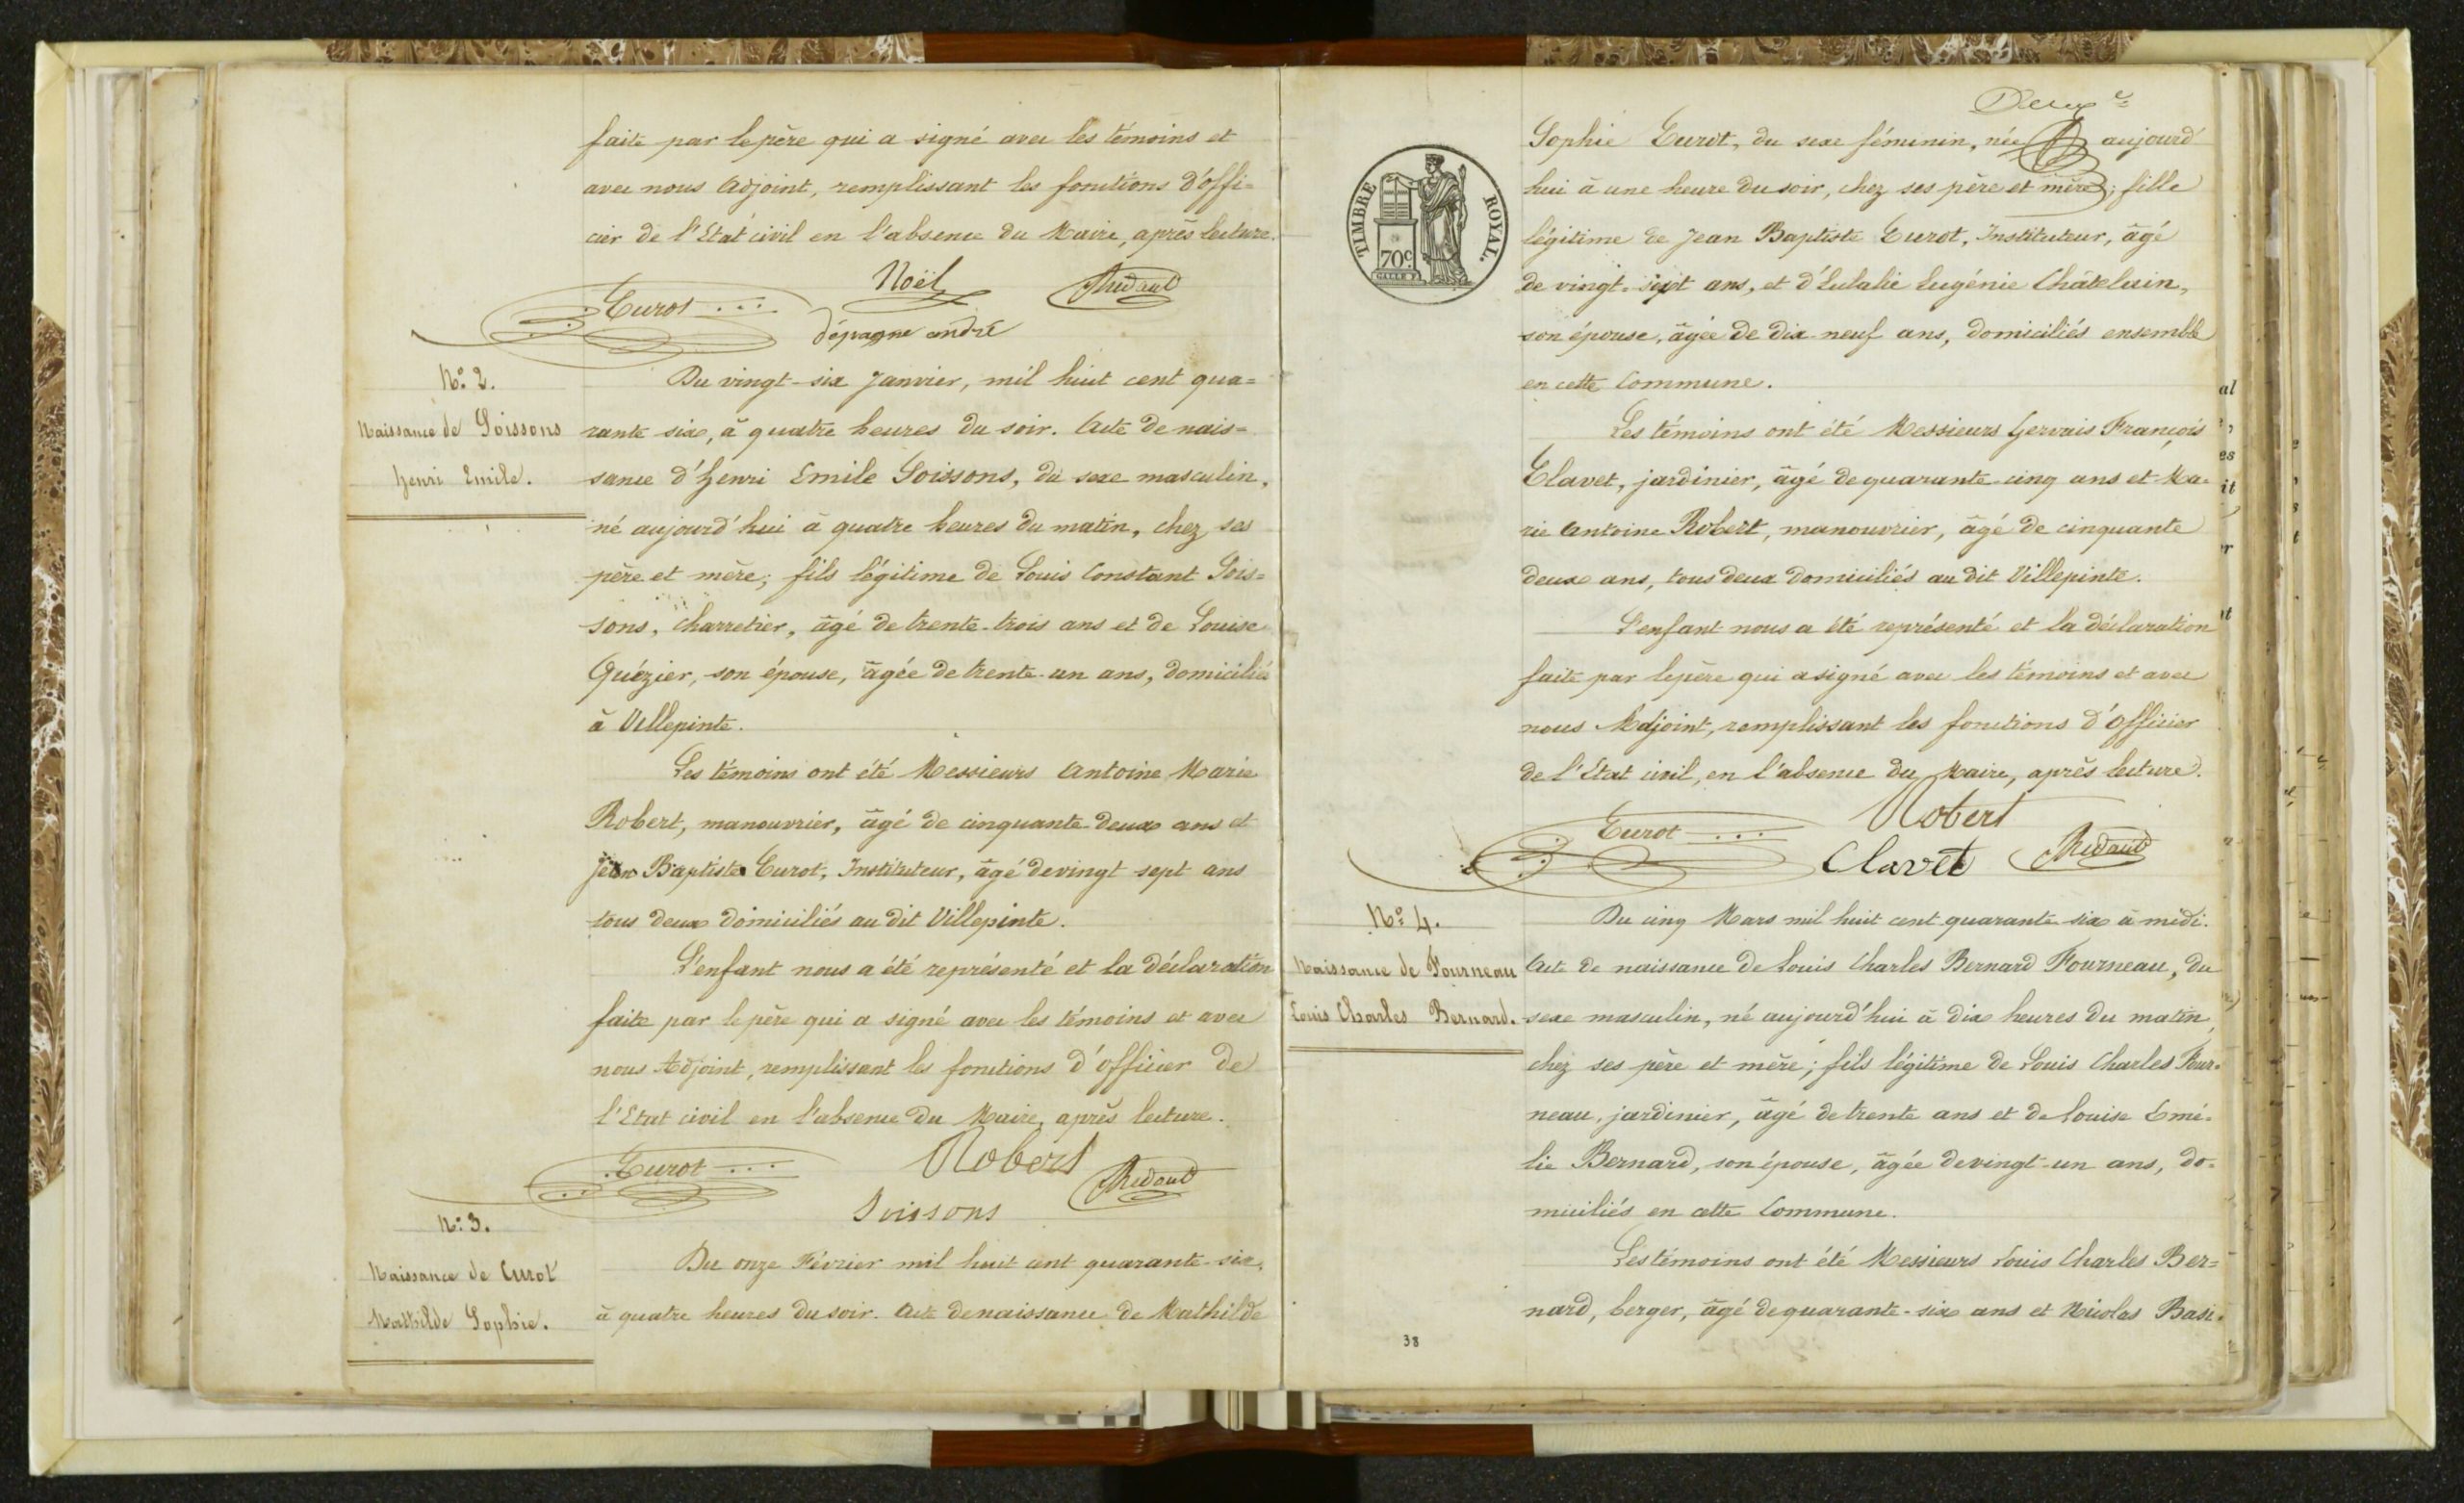 faite par le père qui a signé avec les témoins et
avec nous Adjoint, remplissant les fonctions d'offi=
cier de l'Etat civil en l'absence du Maire, après lecture.
Curot Noël
dépagne andré
N.° 2.
Naissance de Soissons
henri Emile.
Du vingt-six Janvier, mil huit cent qua=
rante six, à quatre heures du soir. Acte de nais=
sance d'henri Emile Soissons, du sexe masculin,
né aujourd'hui à quatre heures du matin, chez ses
père et mère; fils légitime de Louis Constant Sois=
sons, charretier, âgé de trente-trois ans et de Louise
Quézier, son épouse, âgée de trente-un ans, domiciliés
à Villepinte.
Les témoins ont été Messieurs Antoine Marie
Robert, manouvrier, âgé de cinquante-deux ans et
Jean Baptiste Curot, Instituteur, âgé de vingt sept ans
tous deux domiciliés au dit Villepinte.
L'enfant nous a été représenté et la déclaration
faite par le père qui a signé avec les témoins et avec
nous Adjoint, remplissant les fonctions d'officier de
l'Etat civil en l'absence du Maire, après lecture.
Curot Robert
Soissons
N.° 3.
Naissance de Curot
Mathilde Sophie.
Du onze Février mil huit cent quarante-six,
à quatre heures du soir. Acte de naissance de Mathilde
TIMBRE ROYAL.
70c
Sophie Curot, du sexe féminin, née aujourd'
hui à une heure du soir, chez ses père et mère; fille
légitime de Jean Baptiste Curot, Instituteur, âgé
de vingt-sept ans, et d'Eulalie Eugénie Châtelain,
son épouse, âgée de dix-neuf ans, domiciliés ensemble
en cette Commune.
Les témoins ont été Messieurs Gervais François
Clavet, jardinier, âgé de quarante-cinq ans et Ma=
rie Antoine Robert, manouvrier, âgé de cinquante
deux ans, tous deux domiciliés au dit Villepinte.
L'enfant nous a été représenté et la déclaration
faite par le père qui a signé avec les témoins et avec
nous Adjoint, remplissant les fonctions d'Officier
de l'Etat civil, en l'absence du Maire, après lecture.
Curot Robert
Clavet
N.° 4.
Naissance de Fourneau
Louis Charles Bernard.
Du cinq Mars mil huit cent quarante-six à midi.
Acte de naissance de Louis Charles Bernard Fourneau, du
sexe masculin, né aujourd'hui à dix heures du matin,
chez ses père et mère; fils légitime de Louis Charles Four=
neau, jardinier, âgé de trente ans et de Louise Emé=
lie Bernard, son épouse, âgée de vingt-un ans, do=
miciliés en cette Commune.
Les témoins ont été Messieurs Louis Charles Ber=
nard, berger, âgé de quarante-six ans et Nicolas Basi=
38